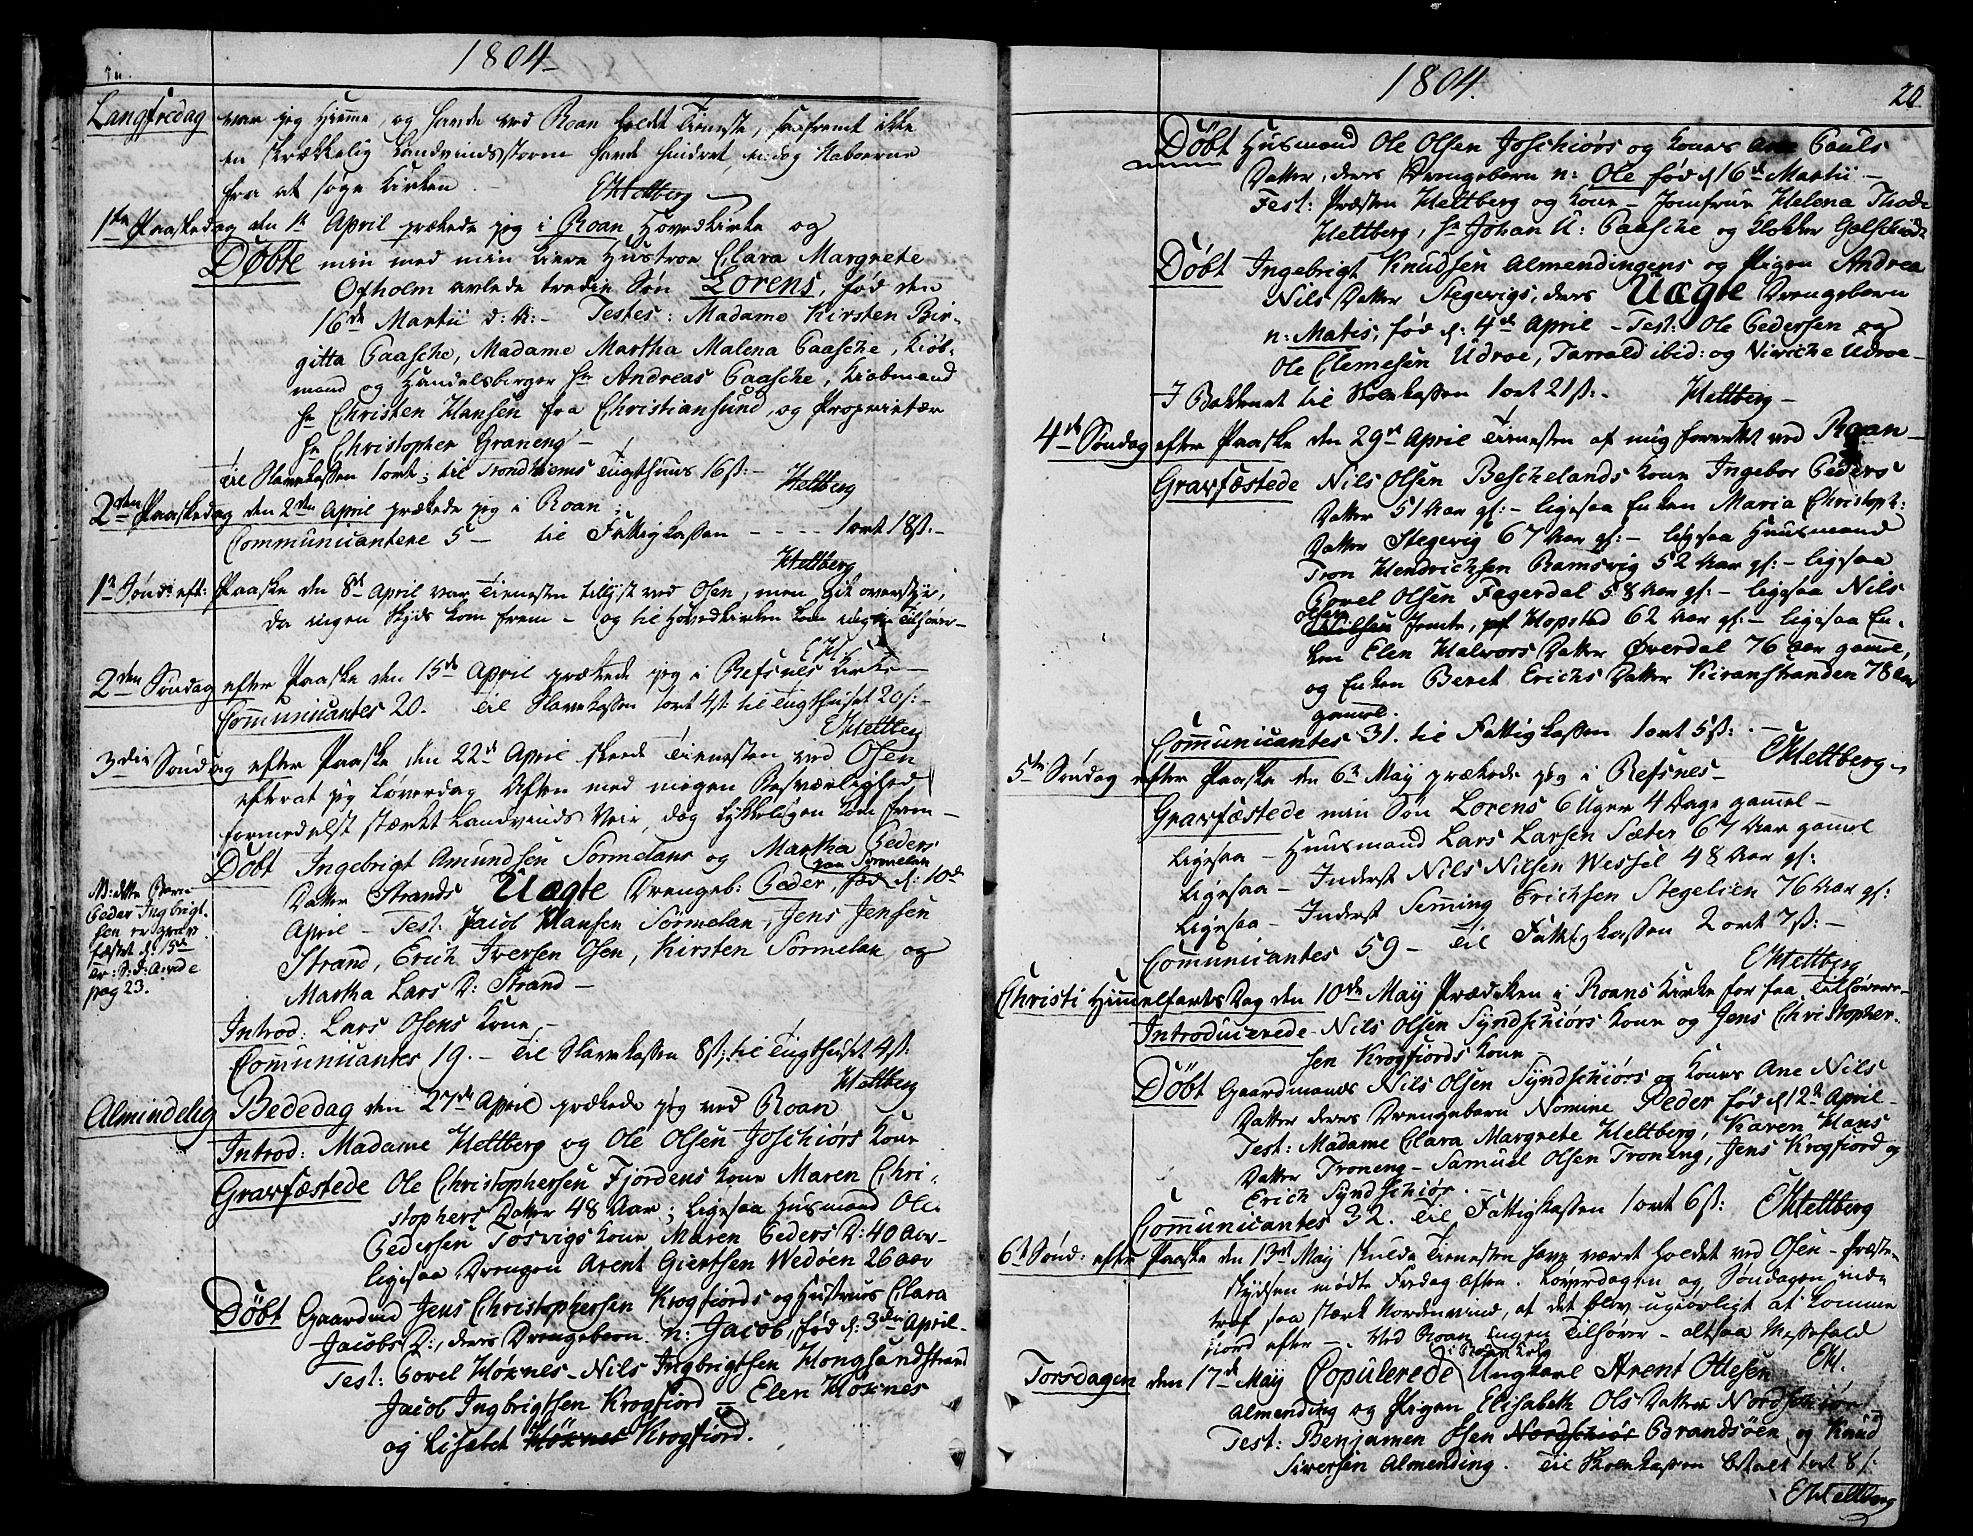 1804
Langfredag var jeg hiemme, og havde ved Roan holdet Tieneste, saafremt ikke
en skrækkelig Landvindsstorm havde hindret, endog Naboerne
fra at søge Kirken.
EHeltberg
1ste Paaskedag den 1st April prækede jeg i Roan Hovedkirke og
Döbte min med min kiere Hustroe Clara Margrete
Oxholm avlede tredie Søn Lorens, fød den
16de Martii d: A: - Testes: Madame Kirsten Bir-
gitta Paasche, Madame Martha Malena Paasche, Kiøb-
mand og Handelsborger Hr Andreas Paasche, Kiøbmand
Hr Christen Hansen fra Christiansund, og Proprietær
Hr Christopher Graneng -
Til Slavekassen 1 ort; til Trondhiems Tugthuus 16 ß: -
Heltberg
2den Paaskedag den 2den April prækede jeg i Roan;
Communicantere 5 - til Fattigkassen - - - - 1 ort 18 ß: -
Heltberg
1st Sønd: eft: Paaske den 8de April var Tienesten tillyst ved Osen, men gik overstyr,
da ingen Skyds kom frem - og til Hovedkirken kom ingen Tilhører -
EH.
2den Søndag efter Paaske den 15de April prækede jeg i Refsnes Kirke -
Communicantes 20. Til Slavekassen 1 ort 4 ß: til Tugthuset 20 ß: -
EHeltberg
3die Søndag efter Paaske, den 22de April skeede Tienesten ved Osen
efterat jeg Løverdag Aften med megen Besværlighed
formedelst stærkt Landvinds Veir, dog lykkeligen kom frem -
Döbt Ingebrigt Amundsen Sormelans og Martha Peders
Datter Strands Uægte Drengeb: Peder, fød d: 10de
paa Sormelan
April - Test: Jacob Hansen Sörmelan, Jens Jensen
Strand, Erich Iversen Osen, Kirsten Sormelan og
Martha Lars D: Strand -
NB: dette Barn
Peder Ingbrigt-
sen er grav-
fæstet d: 15de
 vide
pag 23.
Introd: Lars Osens Kone -
Communicantes 19. - Til Slavekassen 8 ß; til Tugthuset 4 ß:
Heltberg
Almindelig Bededag den 27de April prækede jeg ved Roan
Introd: Madame Heltberg og Ole Olsen Joschiörs Kone
Gravfæstede Ole Christophersen Fjordens Kone Maren Chri-
stophers Datter 48 Aar; ligesaa Husmand Ole
Pedersen Tösvigs Kone Maren Peders D: 40 Aar -
ligesaa Drengen Arent Giertsen Wedöen 26 aar
Döbt Gaardmd Jens Christophersen Krogfiords og Hustrues Clara
Jacobs D:, deres Drengebarn n: Jacob, fød d: 3die April -
Test: Povel Höxnes - Nils Ingbrigtsen Hongsandstrand
Jacob Ingbrigtsen Krogfiord - Elen Höxnes
og Lisabet Höxnes Krogfiord.
1804.
20.
Döbt Husmand Ole Olsen Joschiörs og Kones Ane Pauls
Datter, deres Drengebarn n: Ole fød d 16de Martii -
Test: Præsten Heltberg og Kone - Jomfrue Helena Thode
Heltberg, Hr Johan A: Paasche og Klokker Galschiødt
Döbt Ingebrigt Knudsen Almendingens og Pigen Andrea
Nils Datter Stegevigs, deres Uægte Drengebarn
n: Matis, fød d: 4de April - Test: Ole Pedersen og
Ole Clemesen Udroe, Tarrald ibid: og Virriche Udroe -
I Bekkenet til Skolekassen 1 ort 21 ß: -
Heltberg -
4de Søndag efter Paaske den 29de April Tienesten af mig forrettet ved Roan -
Gravfæstede Nils Olsen Beschelands Kone Ingebor Peders
Datter 51 Aar gl: - ligesaa Enken Maria Christoph:
Datter Stegevig 67 Aar gl: - ligesaa Huusmand
Tron Hendrichsen Ramsvig 52 Aar gl: - ligesaa
Povel Olsen Fagerdal 58 Aar gl: - ligesaa Nils
Olsen
Nilsen Jemte, paa Hopstad 62 Aar gl: - ligesaa En-
ken Elen Halvors Datter Øverdal 76 aar gamel,
og Enken Beret Erichs Datter Kiranstranden 78 aar
gamel.
Communicantes 31. til Fattigkassen 1 ort 5 ß: -
EHeltberg -
5te Søndag efter Paaske den 6te May prækede jeg i Refsnes -
Gravfæstede min Søn Lorens 6 Uger 4 Dage gamel -
Ligesaa - Huusmand Lars Larsen Sæter 67 Aar gamel
Ligesaa - Inderst Nils Nilsen Wessel 48 Aar gl:
Ligesaa - Inderst Semming Erichsen Stegelien 76 Aar gl:
Communicantes 59 - Til Fattigkassen 2 ort 7 ß: -
EHeltberg
Christi Himmelfarts Dag den 10de May Prædiken i Roans Kirke for faa Tilhørere -
Introducerede - Nils Olsen Syndschiörs Kone og Jens Christopher-
sen Krogfiords Kone
Döbt Gaardmands Nils Olsen Syndschiörs og Kones Ane Nils
Datter deres Drengebarn Nomine Peder fød d 12te April -
Test: Madame Clara Margrete Heltberg, Karen Hans
Datter Troneng - Samuel Olsen Troneng, Jens Krogfiord og
Erich Syndschiör.
Communicantes 32. Til Fattigkassen 1 ort 6 ß:
EHeltberg
6te Sønd: efter Paaske den 13de May skulde Tienesten have været holdet ved Osen - Præste-
skydsen mødte Fredag Aften. Løverdagen og Søndagen ind-
traf saa stærk Nordenvind, at det blev ugiørligt at komme
fiord efter - Ved Roan ingen Tilhører - altsaa Messefald
EH.
Torsdagen den 17de May Copulerede Ungkarl Arent Olesen
Almending og Pigen Elisabeth Ols Datter Nordschiör
Test: Benjamen Osen Nordschiör Brandsöen og Knud
Siversen Almending. Til Skolekassen betalt 1 ort 8 ß:
EHeltberg